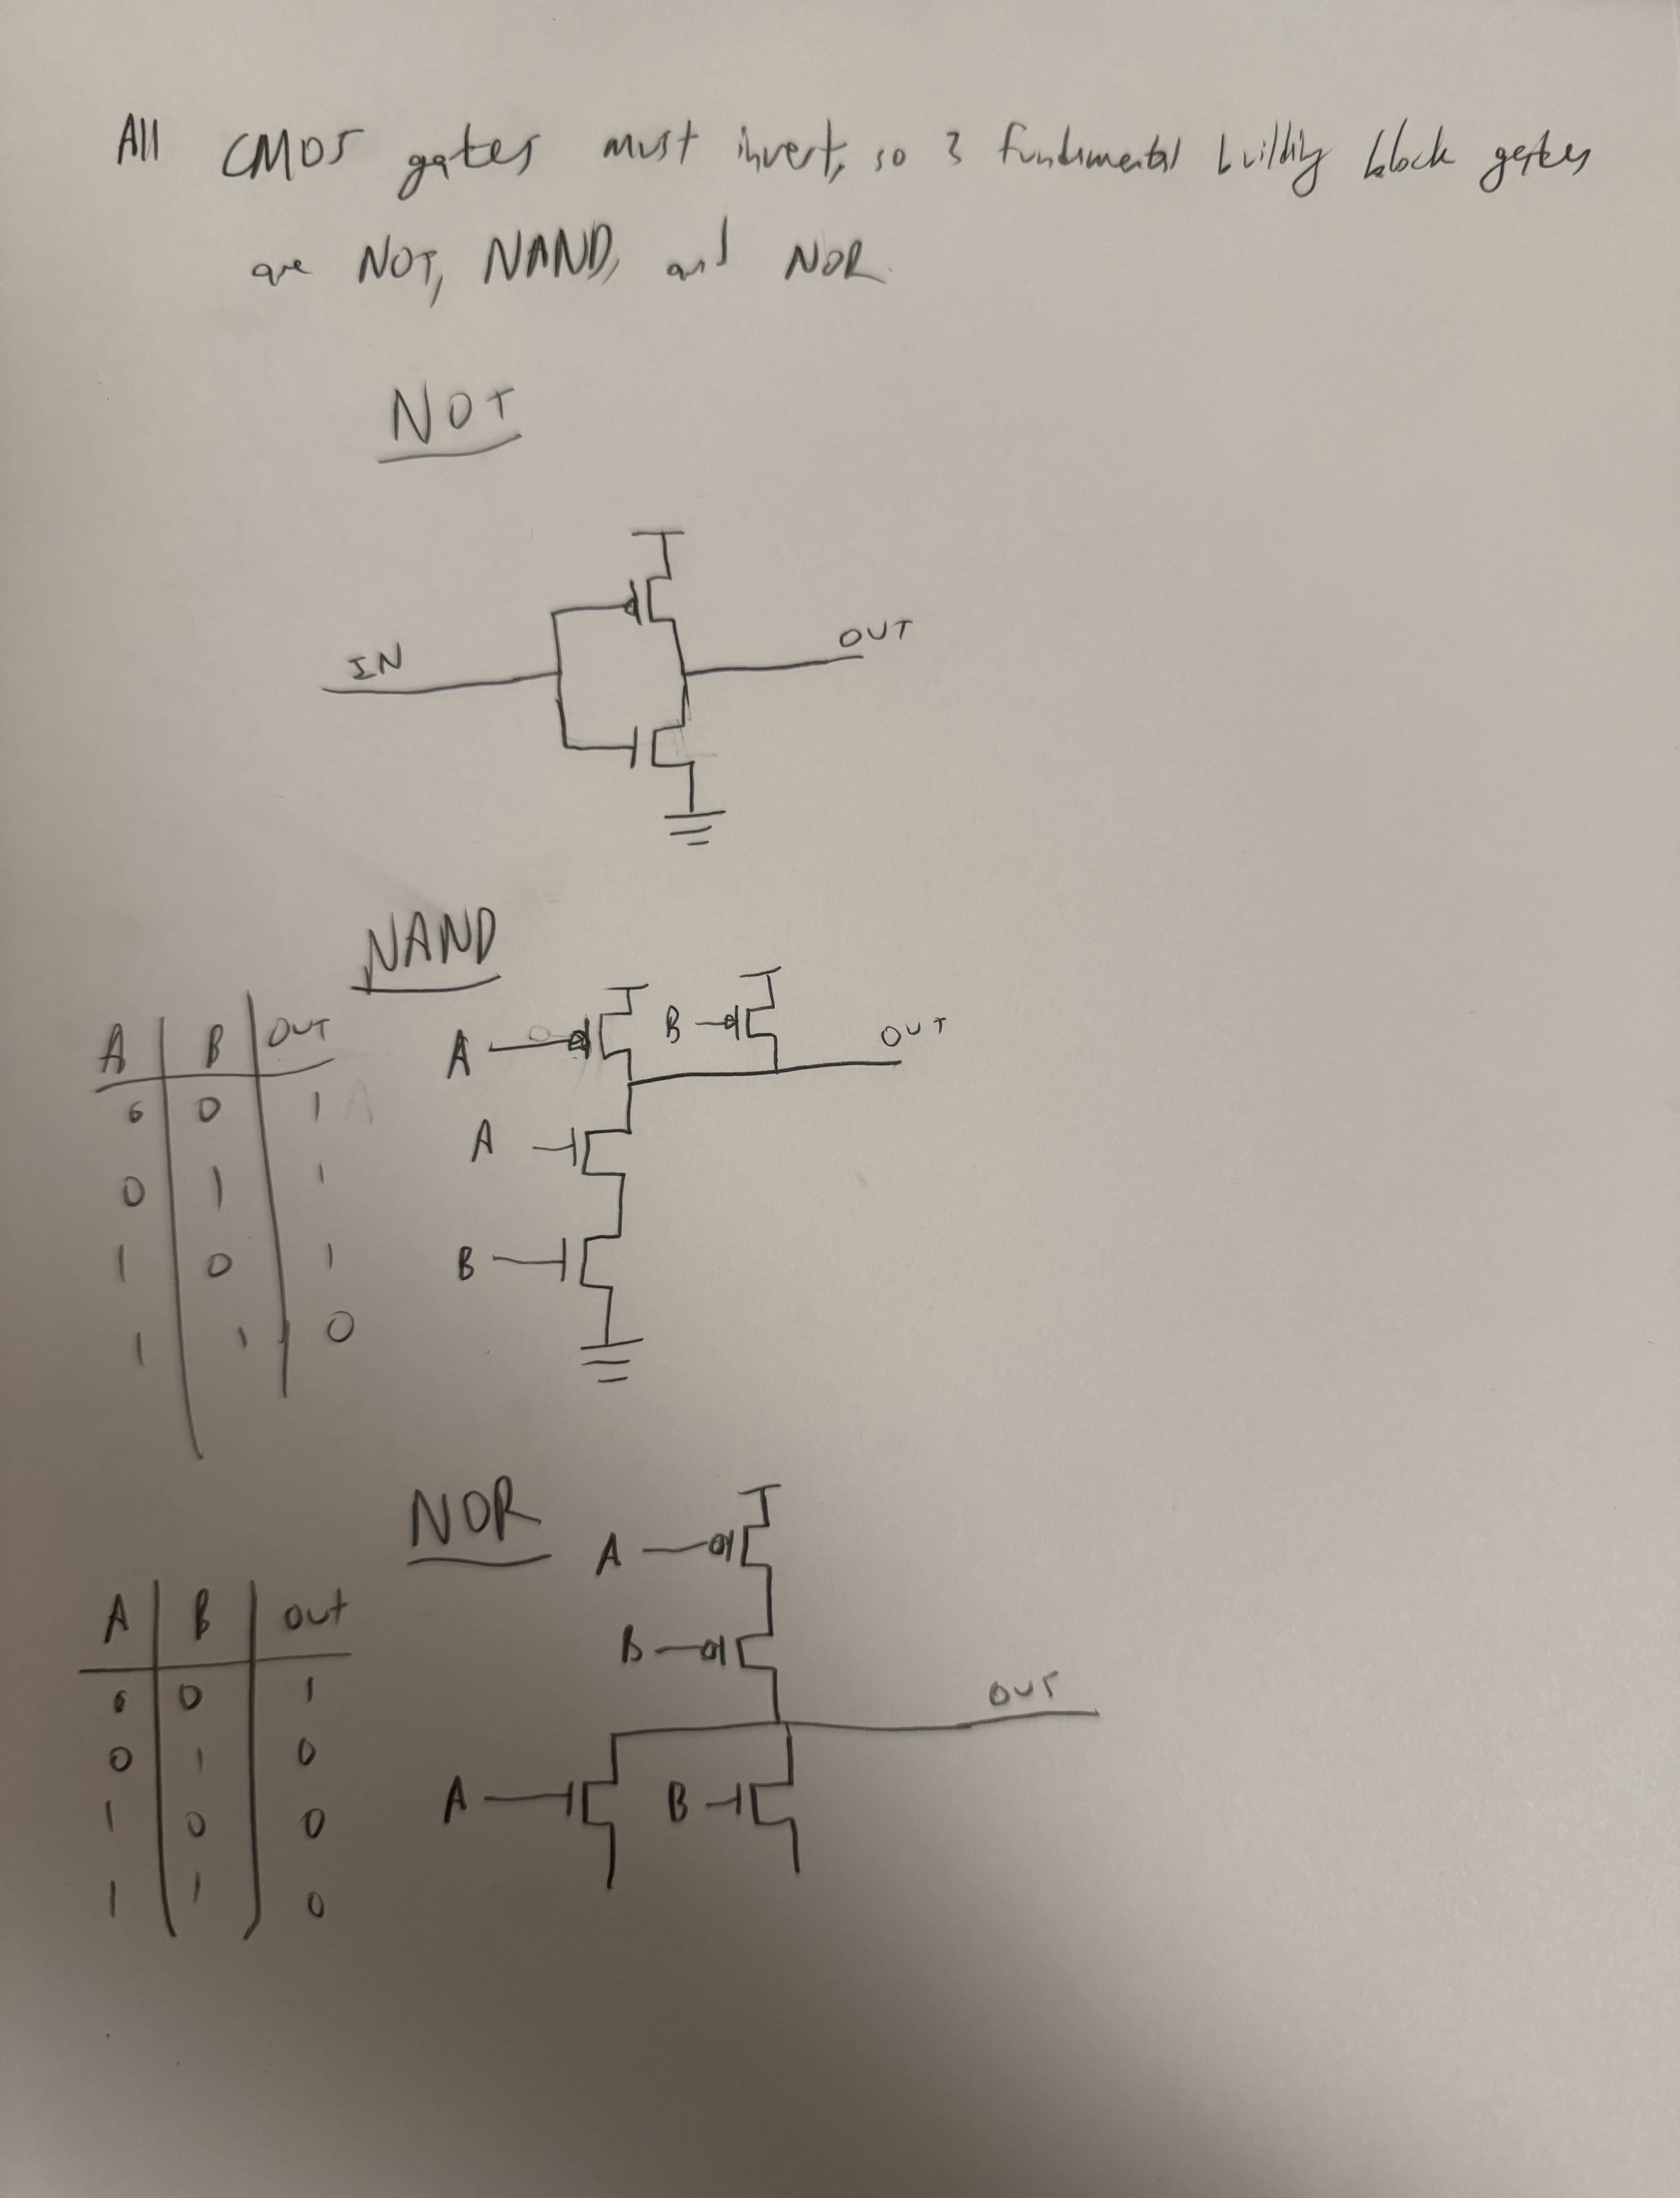 All CMOS gates must invert, so 3 fundamental building block gates
are NOT, NAND, and NOR.
NOT
IN
OUT
NAND
A B OUT
0 0 1
0 1 1
1 0 1
1 1 0
A
B
OUT
A
B
NOR
A B OUT
0 0 1
0 1 0
1 0 0
1 1 0
A
B
OUT
A
B